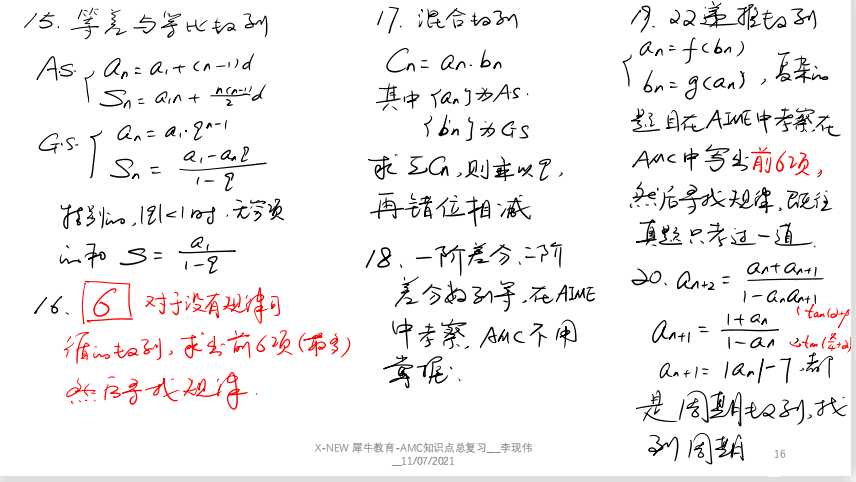 15. 等差与等比数列
A.S. { an = a1 + (n-1)d
Sn = a1n + n(n-1)/2 d
G.S. { an = a1·q^(n-1)
Sn = (a1 - anq)/(1 - q)
特别的, |q|<1时, 无穷项
的和 S = a1/(1-q)
16. 6 对于没有规律可
循的数列, 求出前6项(最多)
然后寻找规律.
17. 混合数列
Cn = an·bn
其中{an}为A.S.
{bn}为G.S
求ΣCn, 则乘以q,
再错位相减
18. 一阶差分、二阶
差分数列等, 在AIME
中考察, AMC不用
掌握.
19. 22递推数列
{ an = f(bn)
bn = g(an) , 复杂的
题目在AIME中考察, 在
AMC中写出前6项,
然后寻找规律, 既往
真题只考过一道.
20. an+2 = (an + an+1)/(1 - an an+1)
(tan(α+β
an+1 = (1+an)/(1-an) , →tan(π/4+α)
an+1 = |an| - 7, 都
是周期数列, 找
到周期
X-NEW 犀牛教育-AMC知识点总复习___李现伟
__11/07/2021
16